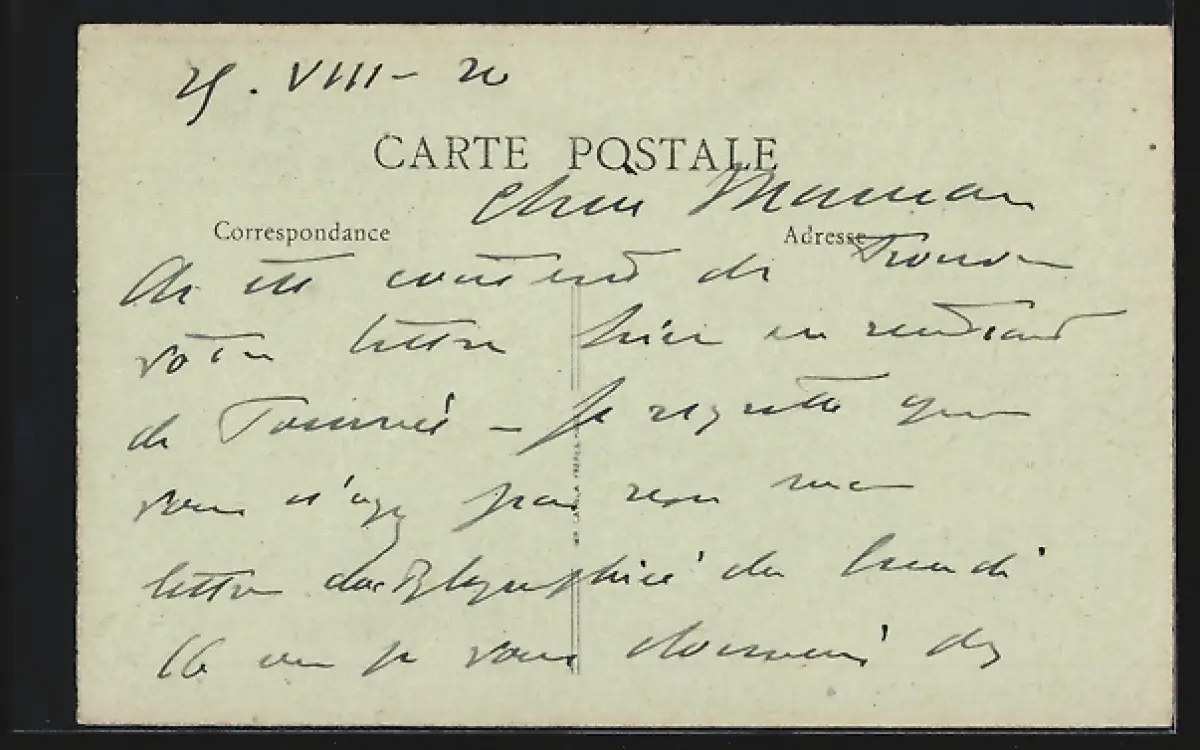 25. VIII - 20
CARTE POSTALE
Chère Maman
Correspondance
Adresse
Ai été content de trouver
votre lettre hier en rentrant
de Tournée - Je regrette que
vous n'ayez pas reçu ma
lettre dactylographiée du lundi
16 où je vous donnais des